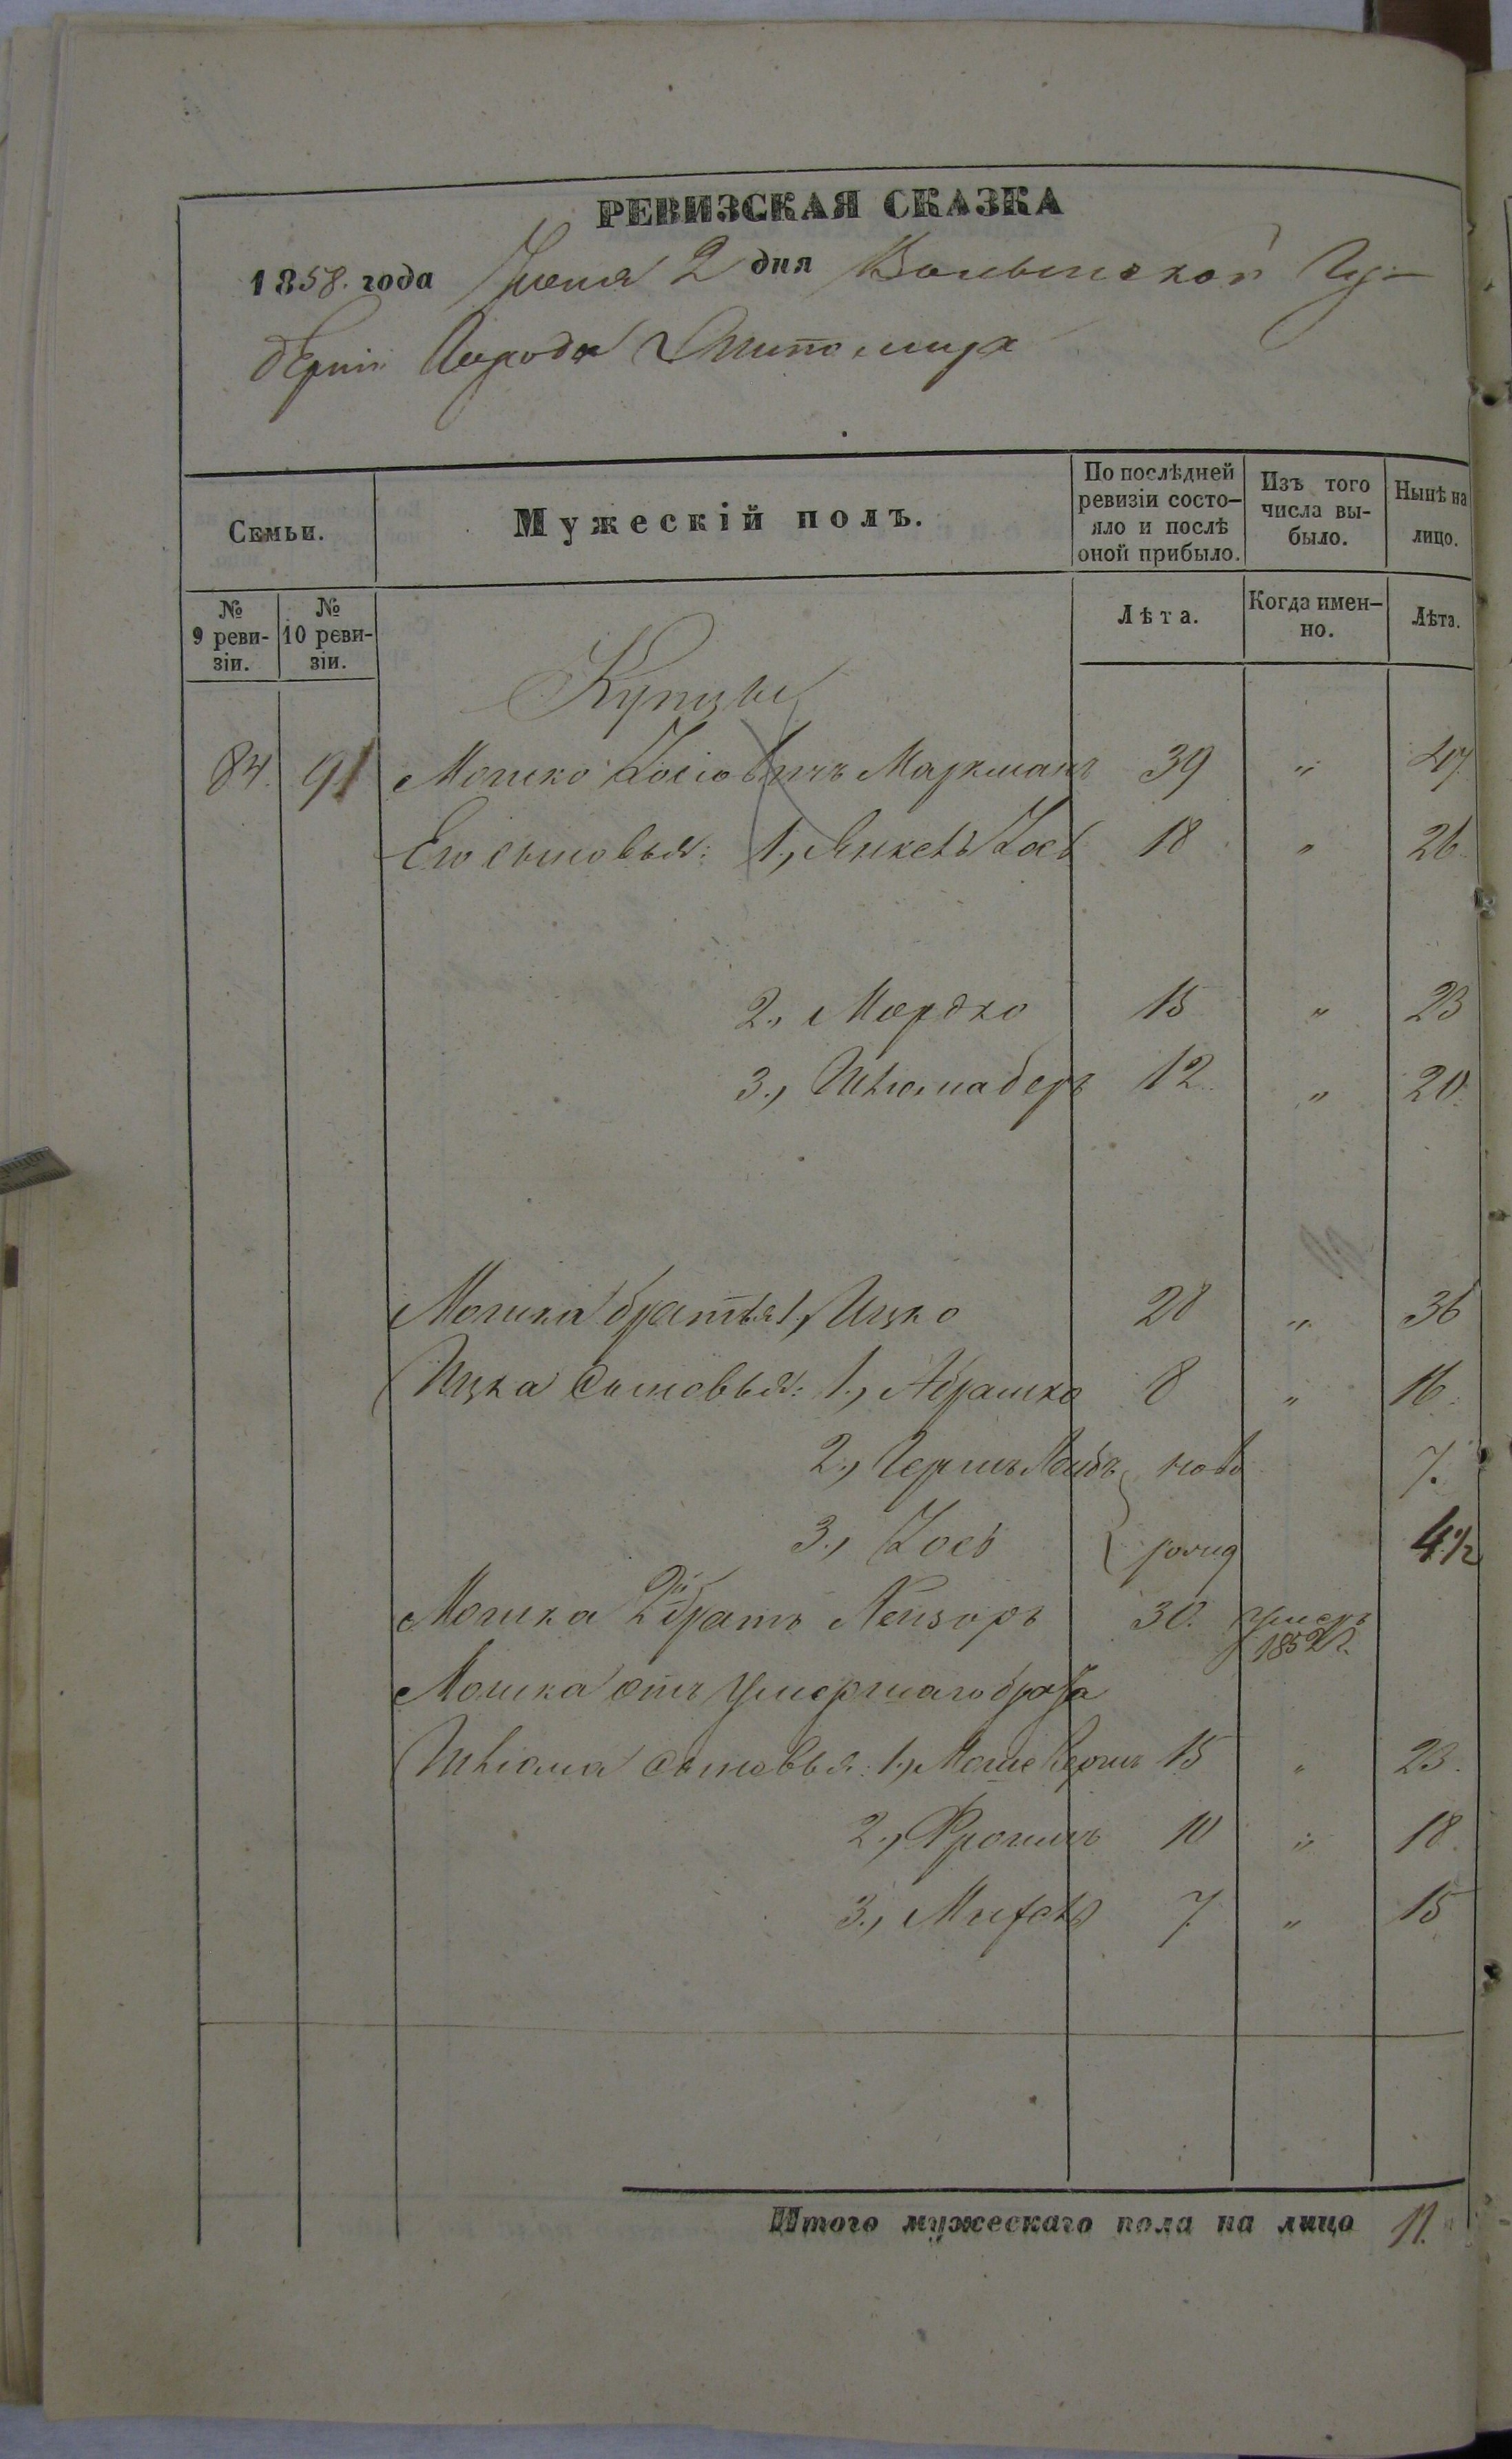 РЕВИЗСКАЯ СКАЗКА
1858. года Июня 2 дня Волынской Гу-
берніи Города Житомира
Семьи.
Мужескій полъ.
По послѣдней
ревизіи состо-
яло и послѣ
оной прибыло.
Изъ того
числа вы-
было.
Нынѣ на
лицо.
№
9 реви-
зіи.
№
10 реви-
зіи.
Лѣта.
Когда имен-
но.
Лѣта.
Купцы
84. 91 Мошко Іосіовичъ Маркманъ 39 " 47
Его сыновья: 1., Янкель Іось 18 " 26
2., Мордко 15 " 23
3., Шлиомаберъ 12 " 20
Мошка братья 1, Ицко 28 " 36
Ицка сыновья: 1., Абрамко 8 " 16
2., Гершъ Лейбъ ново 7.
3., Іось рожд 4½
Мошка 2й братъ Лейзоръ 30. умеръ
1852 г.
Мошка отъ умершаго брата
Шліома сыновья: 1., Моше Гершъ 15 " 23.
2., Фроимъ 10 " 18.
3., 7. " 15
Итого мужескаго пола на лицо 11.